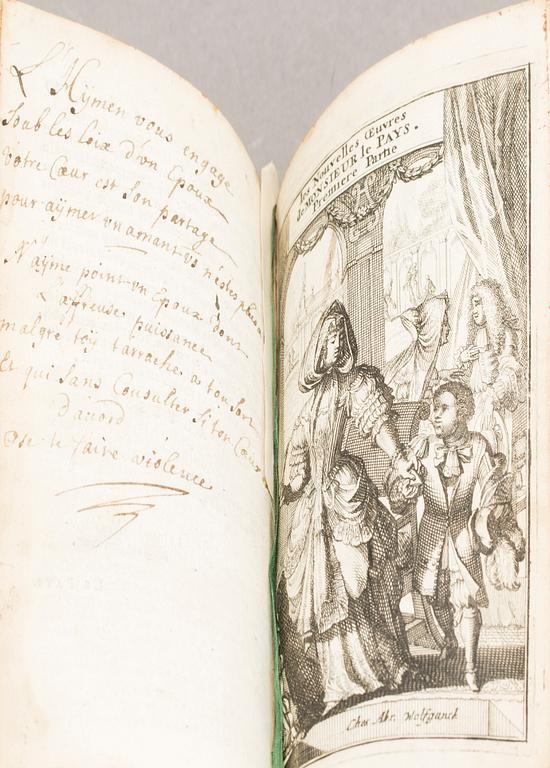 L'Hÿmen vous engage
soub les loix d'vn Epoux
votre Cœur est son partage
pour aÿmer vn amant vs n'estes plus a
N'ayme point vn Epoux dont
L'affreuse puissance
malgre toy t'arrache a ton sort
Et qui sans Consulter si ton Cœur
D'acord
ose te faire violence
Les Nouvelles Œuvres
de MONSIEUR le PAYS.
Premiere Partie
Chez Abr. Wolfganck